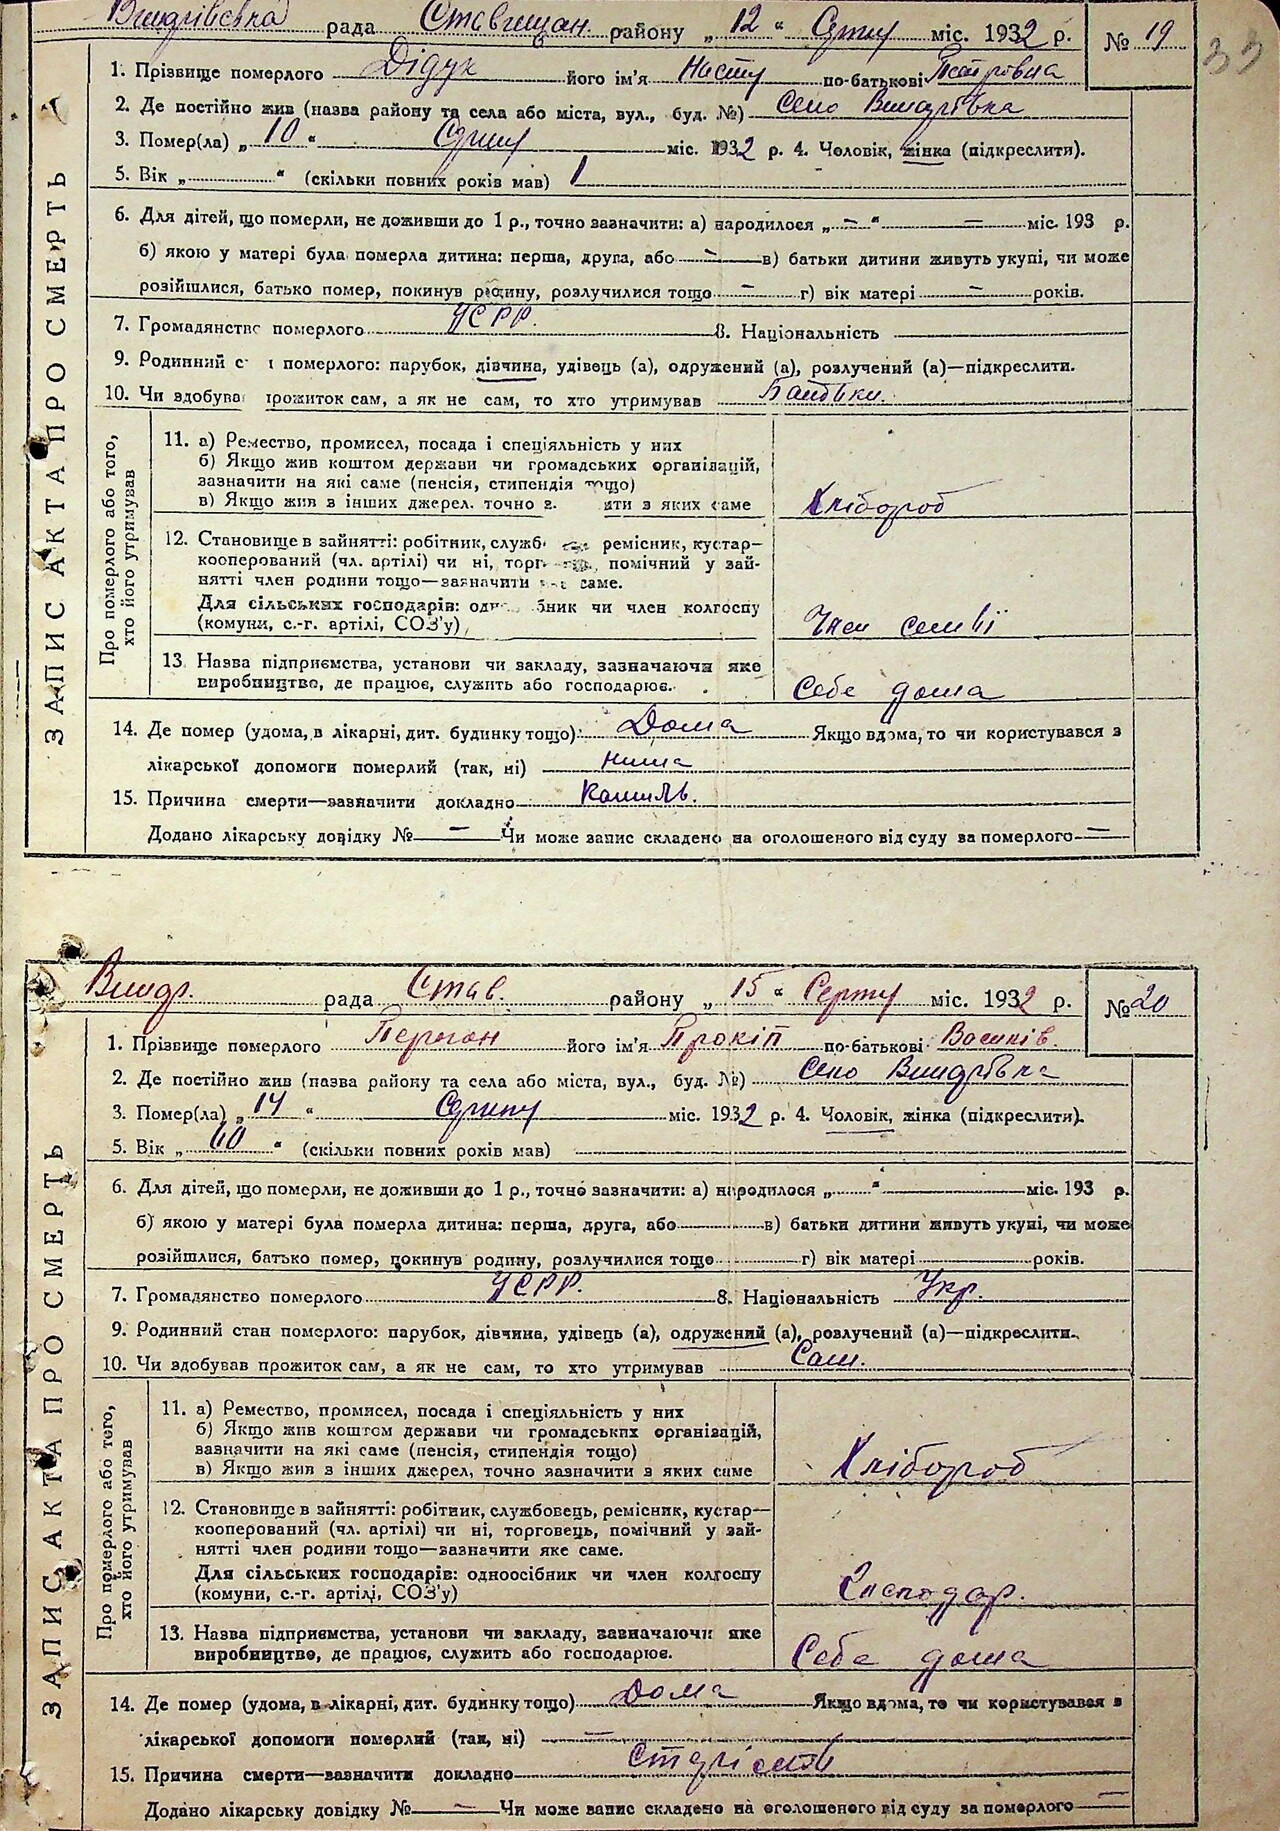 рада Ставищан. району „ 12 “ міс. 1932 р. № 19
33
1. Прізвище померлого Дідук його ім'я Насту по-батькові Петровна
2. Де постійно жив (назва району та села або міста, вул., буд. №) Село Виндрівка
3. Помер(ла) „ 10 “ міс. 1932 р. 4. Чоловік, жінка (підкреслити).
5. Вік „ “ (скільки повних років мав) 1
6. Для дітей, що померли, не доживши до 1 р., точно зазначити: а) народилося „ — “ — міс. 193 р.
б) якою у матері була померла дитина: перша, друга, або — в) батьки дитини живуть укупі, чи може
розійшлися, батько помер, покинув родину, розлучилися тощо — г) вік матері — років.
7. Громадянство померлого УСРР. 8. Національність
9. Родинний с померлого: парубок, дівчина, удівець (а), одружений (а), розлучений (а)—підкреслити.
10. Чи здобува прожиток сам, а як не сам, то хто утримував Батьки.
ЗАПИС АКТА ПРО СМЕРТЬ
Про померлого або того,
хто його утримував
11. а) Ремество, промисел, посада і спеціяльність у них
б) Якщо жив коштом держави чи громадських організацій,
зазначити на які саме (пенсія, стипендія тощо)
в) Якщо жив з інших джерел. точно з яких саме Хлібороб
12. Становище в зайнятті: робітник, служб ремісник, кустар—
кооперований (чл. артілі) чи ні, торг помічний у зай-
нятті член родини тощо—зазначити саме.
Для сільських господарів: одн бник чи член колгоспу
(комуни, с.-г. артілі, СОЗ'у) Член семьї
13. Назва підприємства, установи чи закладу, зазначаючи яке
виробництво, де працює, служить або господарює. Себе дома
14. Де помер (удома, в лікарні, дит. будинку тощо) Дома Якщо вдома, то чи користувався з
лікарської допомоги померлий (так, ні)
15. Причина смерти—зазначити докладно Кашиль.
Додано лікарську довідку № — Чи може запис складено на оголошеного від суду за померлого —
Виндр. рада Став. району „ 15 “ міс. 1932 р. № 20
1. Прізвище померлого його ім'я Прокіп по-батькові
2. Де постійно жив (назва району та села або міста, вул., буд. №) Село Виндрівка
3. Помер(ла) „ 14 “ міс. 1932 р. 4. Чоловік, жінка (підкреслити).
5. Вік „ 60 “ (скільки повних років мав)
6. Для дітей, що померли, не доживши до 1 р., точно зазначити: а) народилося „ “ міс. 193 р.
б) якою у матері була померла дитина: перша, друга, або в) батьки дитини живуть укупі, чи може
розійшлися, батько помер, покинув родину, розлучилися тощо г) вік матері років.
7. Громадянство померлого УСРР. 8. Національність Укр.
9. Родинний стан померлого: парубок, дівчина, удівець (а), одружений (а), розлучений (а)—підкреслити.
10. Чи здобував прожиток сам, а як не сам, то хто утримував Сам.
ЗАПИС АКТА ПРО СМЕРТЬ
Про померлого або того,
хто його утримував
11. а) Ремество, промисел, посада і спеціяльність у них
б) Якщо жив коштом держави чи громадських організацій,
зазначити на які саме (пенсія, стипендія тощо)
в) Якщо жив з інших джерел, точно зазначити з яких саме Хлібороб
12. Становище в зайнятті: робітник, службовець, ремісник, кустар—
кооперований (чл. артілі) чи ні, торговець, помічний у зай-
нятті член родини тощо—зазначити яке саме.
Для сільських господарів: одноосібник чи член колгоспу
(комуни, с.-г. артілі, СОЗ'у) Господар.
13. Назва підприємства, установи чи закладу, зазначаючи яке
виробництво, де працює, служить або господарює. Себе дома
14. Де помер (удома, в лікарні, дит. будинку тощо) Дома Якщо вдома, то чи користувався з
лікарської допомоги померлий (так, ні) —
15. Причина смерти—зазначити докладно Старість
Додано лікарську довідку № — Чи може запис складено на оголошеного від суду за померлого —